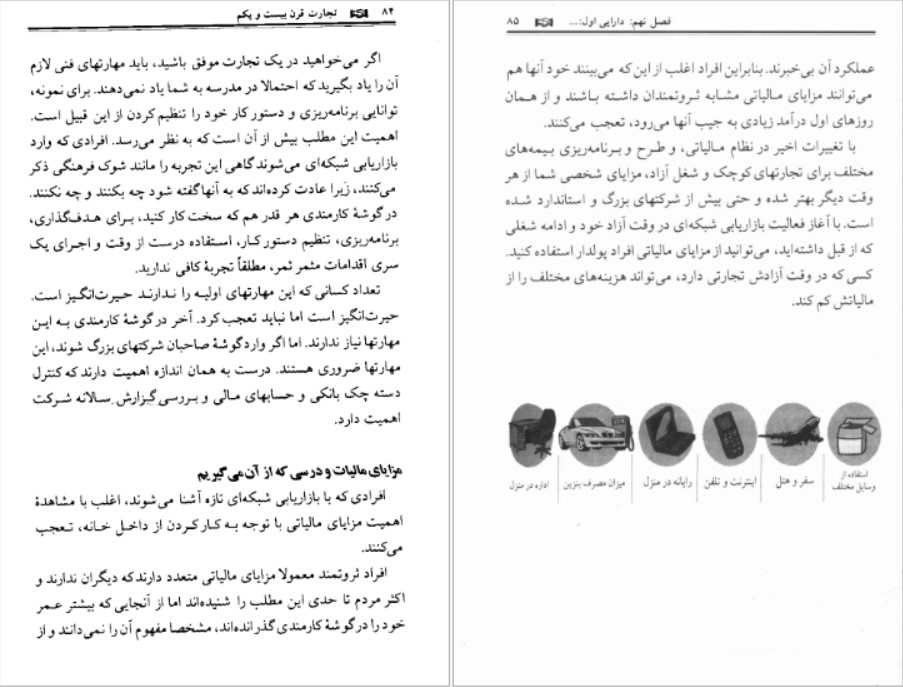 ۸۴ تجارت قرن بیست و یکم
اگر می‌خواهید در یک تجارت موفق باشید، باید مهارتهای فنی لازم
آن را یاد بگیرید که احتمالا در مدرسه به شما یاد نمی‌دهند. برای نمونه،
توانایی برنامه‌ریزی و دستور کار خود را تنظیم کردن از این قبیل است.
اهمیت این مطلب بیش از آن است که به نظر می‌رسد. افرادی که وارد
بازاریابی شبکه‌ای می‌شوند گاهی این تجربه را مانند شوک فرهنگی ذکر
می‌کنند، زیرا عادت کرده‌اند که به آنها گفته شود چه بکنند و چه نکنند.
در گوشهٔ کارمندی هر قدر هم که سخت کار کنید، برای هدفگذاری،
برنامه‌ریزی، تنظیم دستور کار، استفاده درست از وقت و اجرای یک
سری اقدامات مثمر ثمر، مطلقاً تجربهٔ کافی ندارید.
تعداد کسانی که این مهارتهای اولیه را ندارند حیرت‌انگیز است.
حیرت‌انگیز است اما نباید تعجب کرد. آخر در گوشهٔ کارمندی به این
مهارتها نیاز ندارند. اما اگر وارد گوشهٔ صاحبان شرکتهای بزرگ شوند، این
مهارتها ضروری هستند. درست به همان اندازه اهمیت دارند که کنترل
دسته چک بانکی و حسابهای مالی و بررسی گزارش سالانه شرکت
اهمیت دارد.
مزایای مالیات و درسی که از آن می‌گیریم
افرادی که با بازاریابی شبکه‌ای تازه آشنا می‌شوند، اغلب با مشاهدهٔ
اهمیت مزایای مالیاتی با توجه به کار کردن از داخل خانه، تعجب
می‌کنند.
افراد ثروتمند معمولا مزایای مالیاتی متعدد دارند که دیگران ندارند و
اکثر مردم تا حدی این مطلب را شنیده‌اند اما از آنجایی که بیشتر عمر
خود را در گوشهٔ کارمندی گذرانده‌اند، مشخصا مفهوم آن را نمی‌دانند و از
فصل نهم: دارایی اول:... ۸۵
عملکرد آن بی‌خبرند. بنابراین افراد اغلب از این که می‌بینند خود آنها هم
می‌توانند مزایای مالیاتی مشابه ثروتمندان داشته باشند و از همان
روزهای اول درآمد زیادی به جیب آنها می‌رود، تعجب می‌کنند.
با تغییرات اخیر در نظام مالیاتی، و طرح و برنامه‌ریزی بیمه‌های
مختلف برای تجارتهای کوچک و شغل آزاد، مزایای شخصی شما از هر
وقت دیگر بهتر شده و حتی بیش از شرکتهای بزرگ و استاندارد شده
است. با آغاز فعالیت بازاریابی شبکه‌ای در وقت آزاد خود و ادامه شغلی
که از قبل داشته‌اید، می‌توانید از مزایای مالیاتی افراد پولدار استفاده کنید.
کسی که در وقت آزادش تجارتی دارد، می‌تواند هزینه‌های مختلف را از
مالیاتش کم کند.
استفاده از
وسایل مختلف
سفر و هتل
اینترنت و تلفن
رایانه در منزل
میزان مصرف بنزین
اداره در منزل